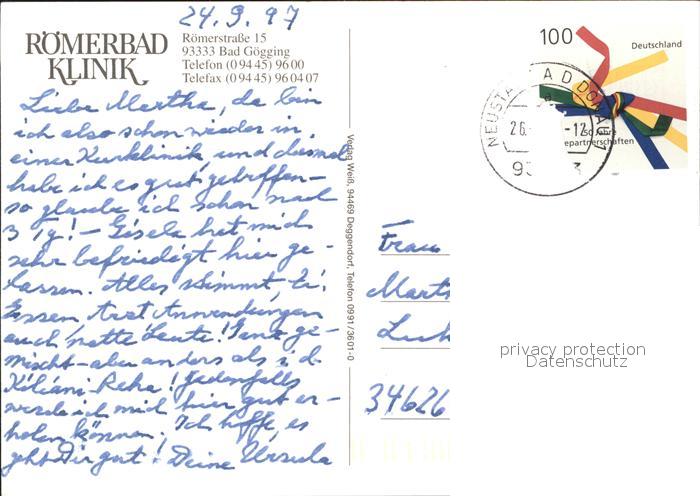 24.9.97
RÖMERBAD
KLINIK
Römerstraße 15
93333 Bad Gögging
Telefon (0 94 45) 96 00
Telefax (0 94 45) 96 04 07
Liebe Martha, da bin
ich also schon wieder in
einer Kurklinik, und diesmal
habe ich es gut getroffen –
so glaube ich schon nach
3 Tg! – Gisela hat mich
sehr befriedigt hier ge-
lassen. Alles stimmt, Zi.
Essen Arzt Anwendungen
auch nette Leute! Ganz ge-
mischt – aber anders als i. d.
Kiliani-Reha! Jedenfalls
werde ich mich hier gut er-
holen können. Ich hoffe, es
geht Dir gut! Deine Ursula
Verlag Weiß, 94469 Deggendorf, Telefon 0991/3601-0
100
Deutschland
50 Jahre
epartnerschaften
1997
NEUSTA AD DONAU
a
26. -12
93 3
Frau
Mart
Luh
34626
privacy protection
Datenschutz